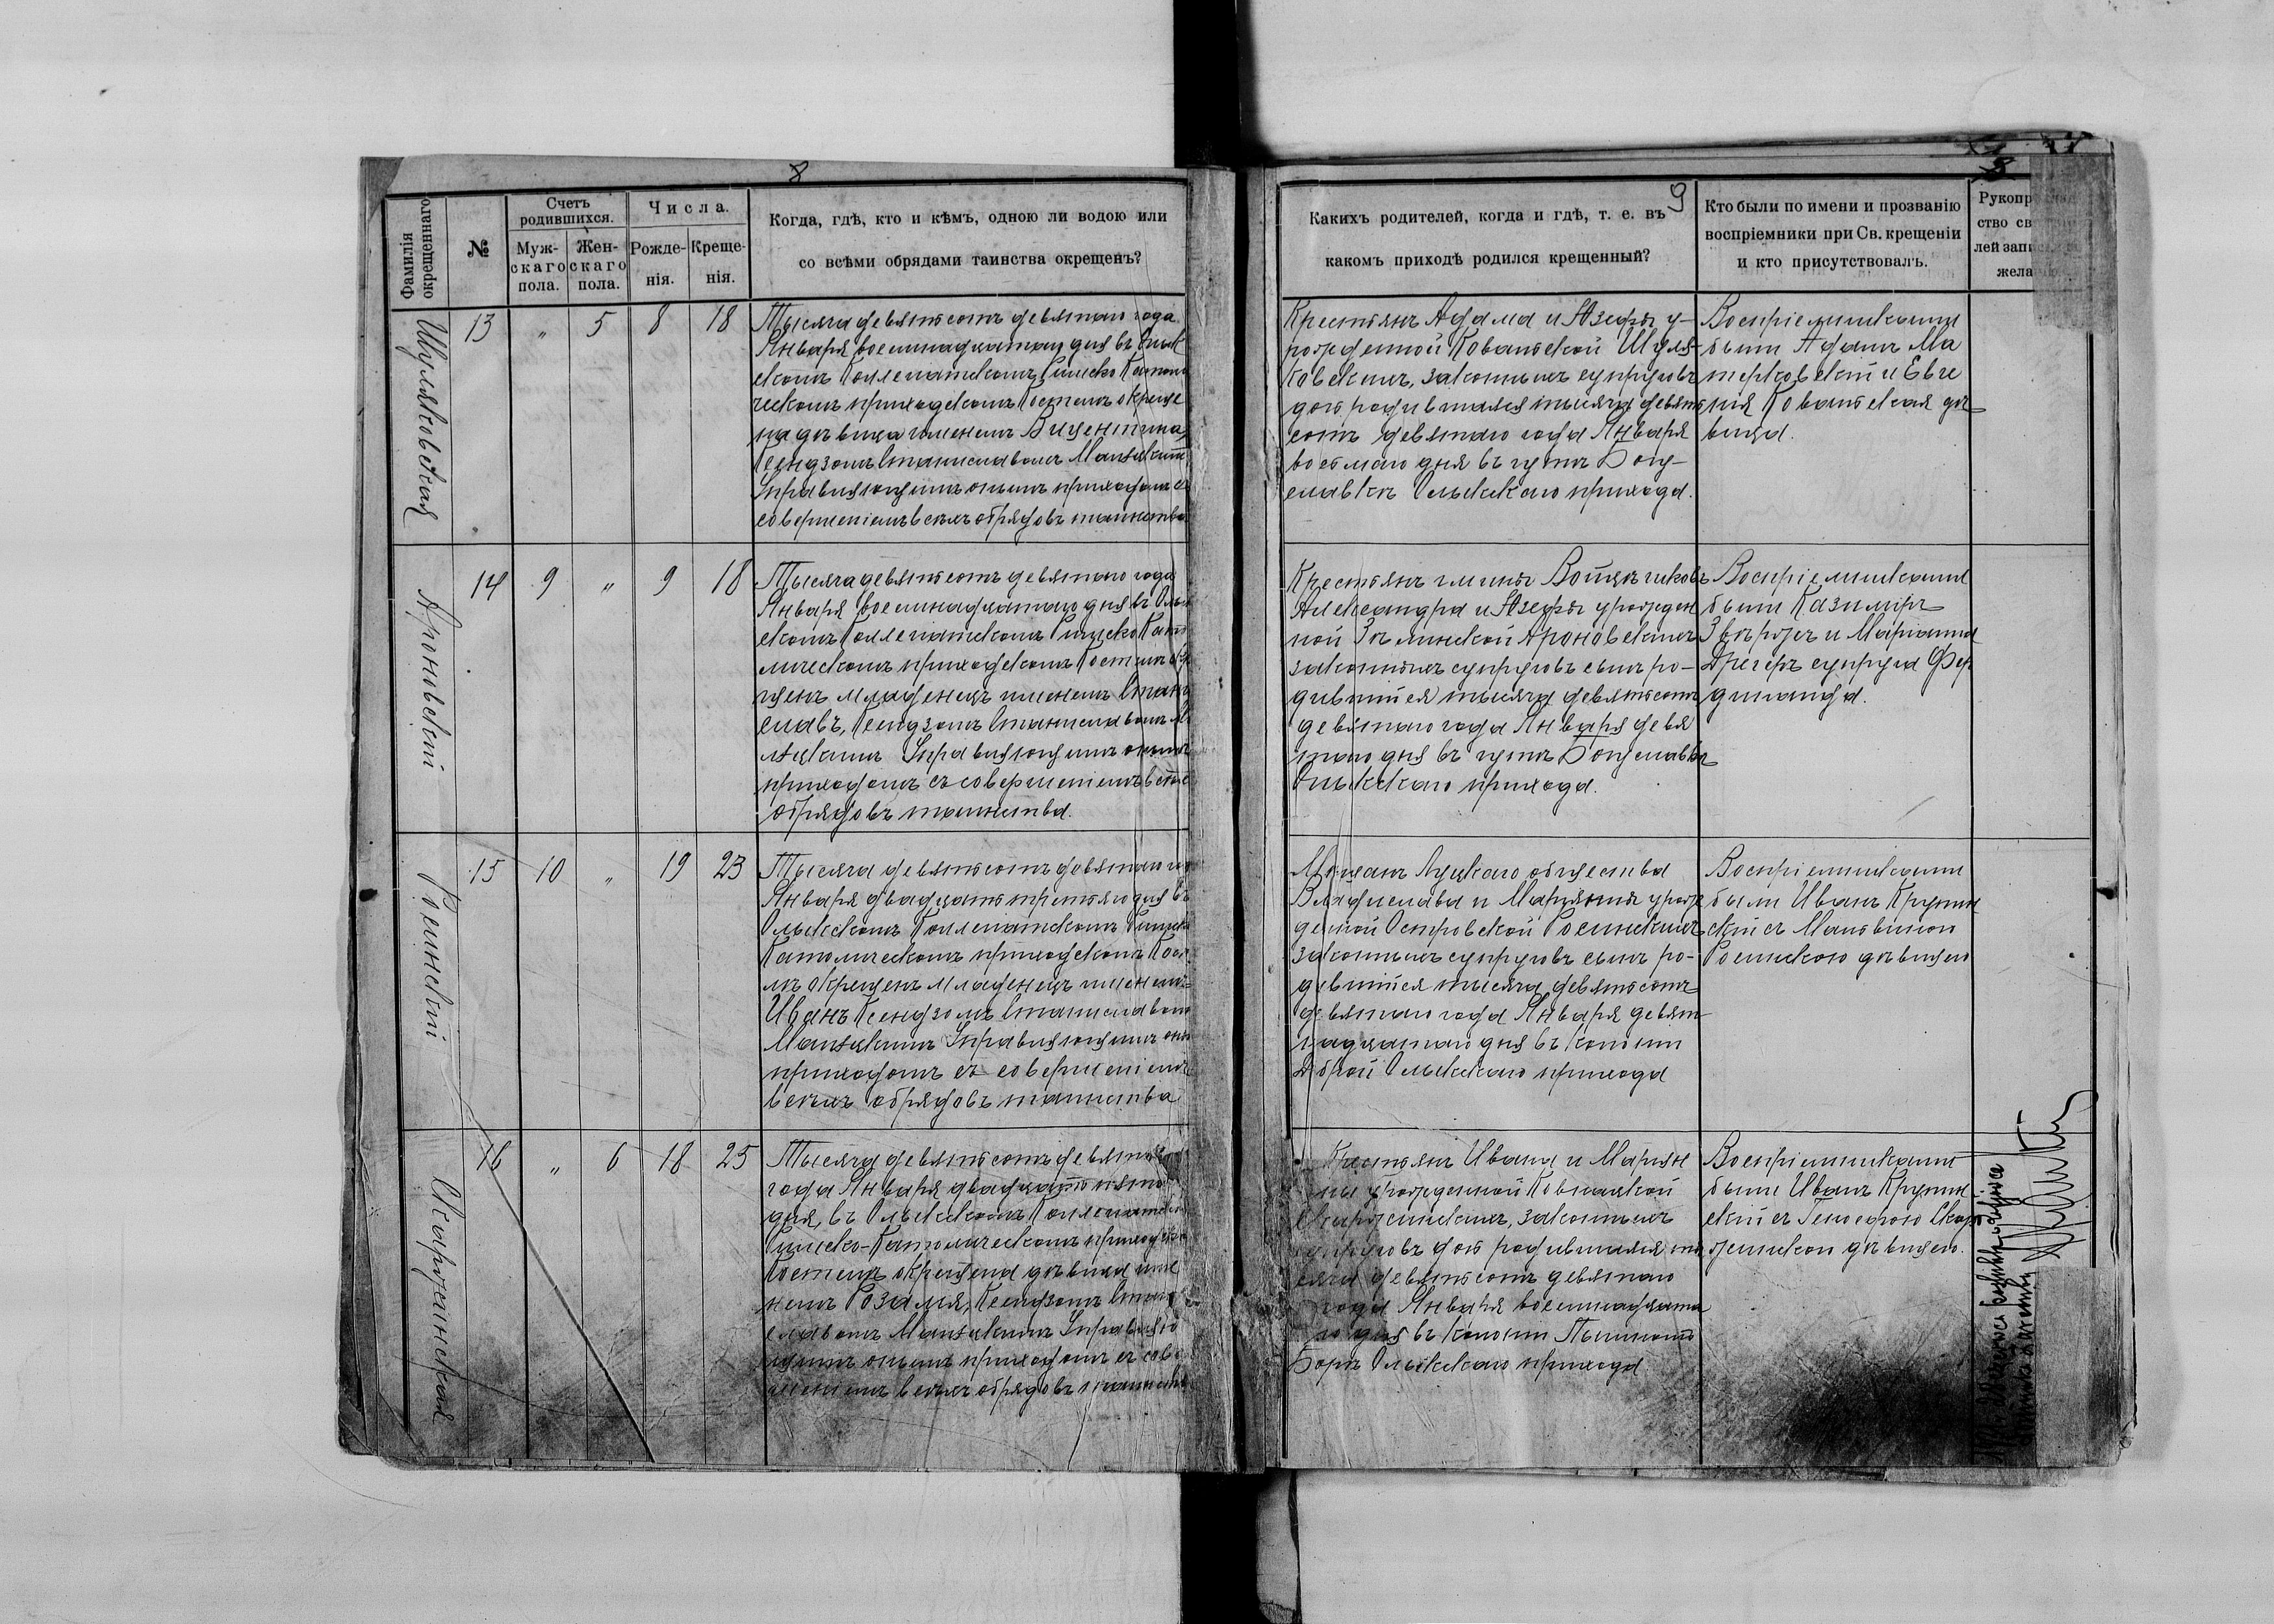 8
Фамилія
окрещеннаго
№
Счетъ
родившихся.
Муж-
скаго
пола.
Жен-
скаго
пола.
Числа.
Рожде-
нія.
Креще-
нія.
Когда, гдѣ, кто и кѣмъ, одною ли водою или
со всѣми обрядами таинства окрещенъ?
Шуляковская
13 " 5 8 18
Тысяча девятьсотъ девятаго года
Января восемнадцатаго дня въ Олык
скомъ Коллегіатскомъ Римско Катол
ческомъ приходскомъ Костелѣ окреще
на дѣвица именемъ Викентина,
Ксендзомъ Станиславомъ
Управляющимъ онымъ приходомъ съ
совершеніемъ всѣхъ обрядовъ таинства
Яроновскій
14 9 " 9 18
Тысяча девятьсотъ девятаго года
Января восемнадцатаго дня въ Олык
скомъ Коллегіатскомъ Римско Като
лическомъ приходскомъ Костелѣ окре
щенъ младенецъ именемъ Стани
славъ, Ксендзомъ Станиславомъ
Управляющимъ онымъ
приходомъ съ совершеніемъ всѣхъ
обрядовъ таинства.
Росинскій
15 10 " 19 23
Тысяча девятьсотъ девятаго го
Января двадцать третьяго дня въ
Олыкскомъ Коллегіатскомъ Римско
Католическомъ приходскомъ Косте
лѣ окрещенъ младенецъ именемъ
Иванъ Ксендзомъ Станиславомъ
Управляющимъ оны
приходомъ съ совершеніемъ
всѣхъ обрядовъ таинства
Скаржинская
16 " 6 18 25
Тысяча девятьсотъ девятаго
года Января двадцать пятаго
дня, въ Олыкскомъ Коллегіатском
Римско-Католическомъ приходско
Костелѣ окрещена дѣвица име
немъ Розалія, Ксендзомъ Стани
славомъ Управляю
щимъ онымъ приходомъ съ сове
шеніемъ всѣхъ обрядовъ таинств
9
Какихъ родителей, когда и гдѣ, т. е. въ
какомъ приходѣ родился крещенный?
Кто были по имени и прозванію
воспріемники при Св. крещеніи
и кто присутствовалъ.
Рукопр
ство св
лей зап
жела
Крестьянъ Адама и Юзефы у-
рожденной Ковальской Шуля-
ковскихъ, законныхъ супруговъ
дочь родившаяся тысяча девять
сотъ девятаго года Января
восьмаго дня въ
Олыкскаго прихода.
Воспріемниками
были Адамъ Ма
терковскій и Евге
нія Ковальская дѣ
вица.
Крестьянъ гмины
Александра и Юзефы урожден
ной Зѣлинской Яроновскихъ
законныхъ супруговъ сынъ ро-
дившійся тысяча девятьсотъ
девятаго года Января девя
таго дня въ
Олыкскаго прихода.
Воспріемниками
были Казиміръ
и Маріанна
Дрегеръ супруга Фер
динанда.
Мѣщанъ Луцкаго общества
Владислава и Маріанны урож
денной Островской Росинскихъ
законныхъ супруговъ сынъ ро-
дившійся тысяча девятьсотъ
девятаго года Января девят
надцатаго дня въ колоніи
Доброй Олыкскаго прихода
Воспріемниками
были Иванъ Крупин
скій съ Мальвиною
Росинскою дѣвицею
Крестьянъ Ивана и Маріан
ны урожденной
Скаржинскихъ, законныхъ
супруговъ дочь родившаяся ты
сяча девятьсотъ девятаго
года Января восемнадцата
го дня въ колоніи
Борѣ Олыкскаго прихода
Воспріемниками
были Иванъ Крупин
скій съ Генофею Скар
жинскою дѣвицею.